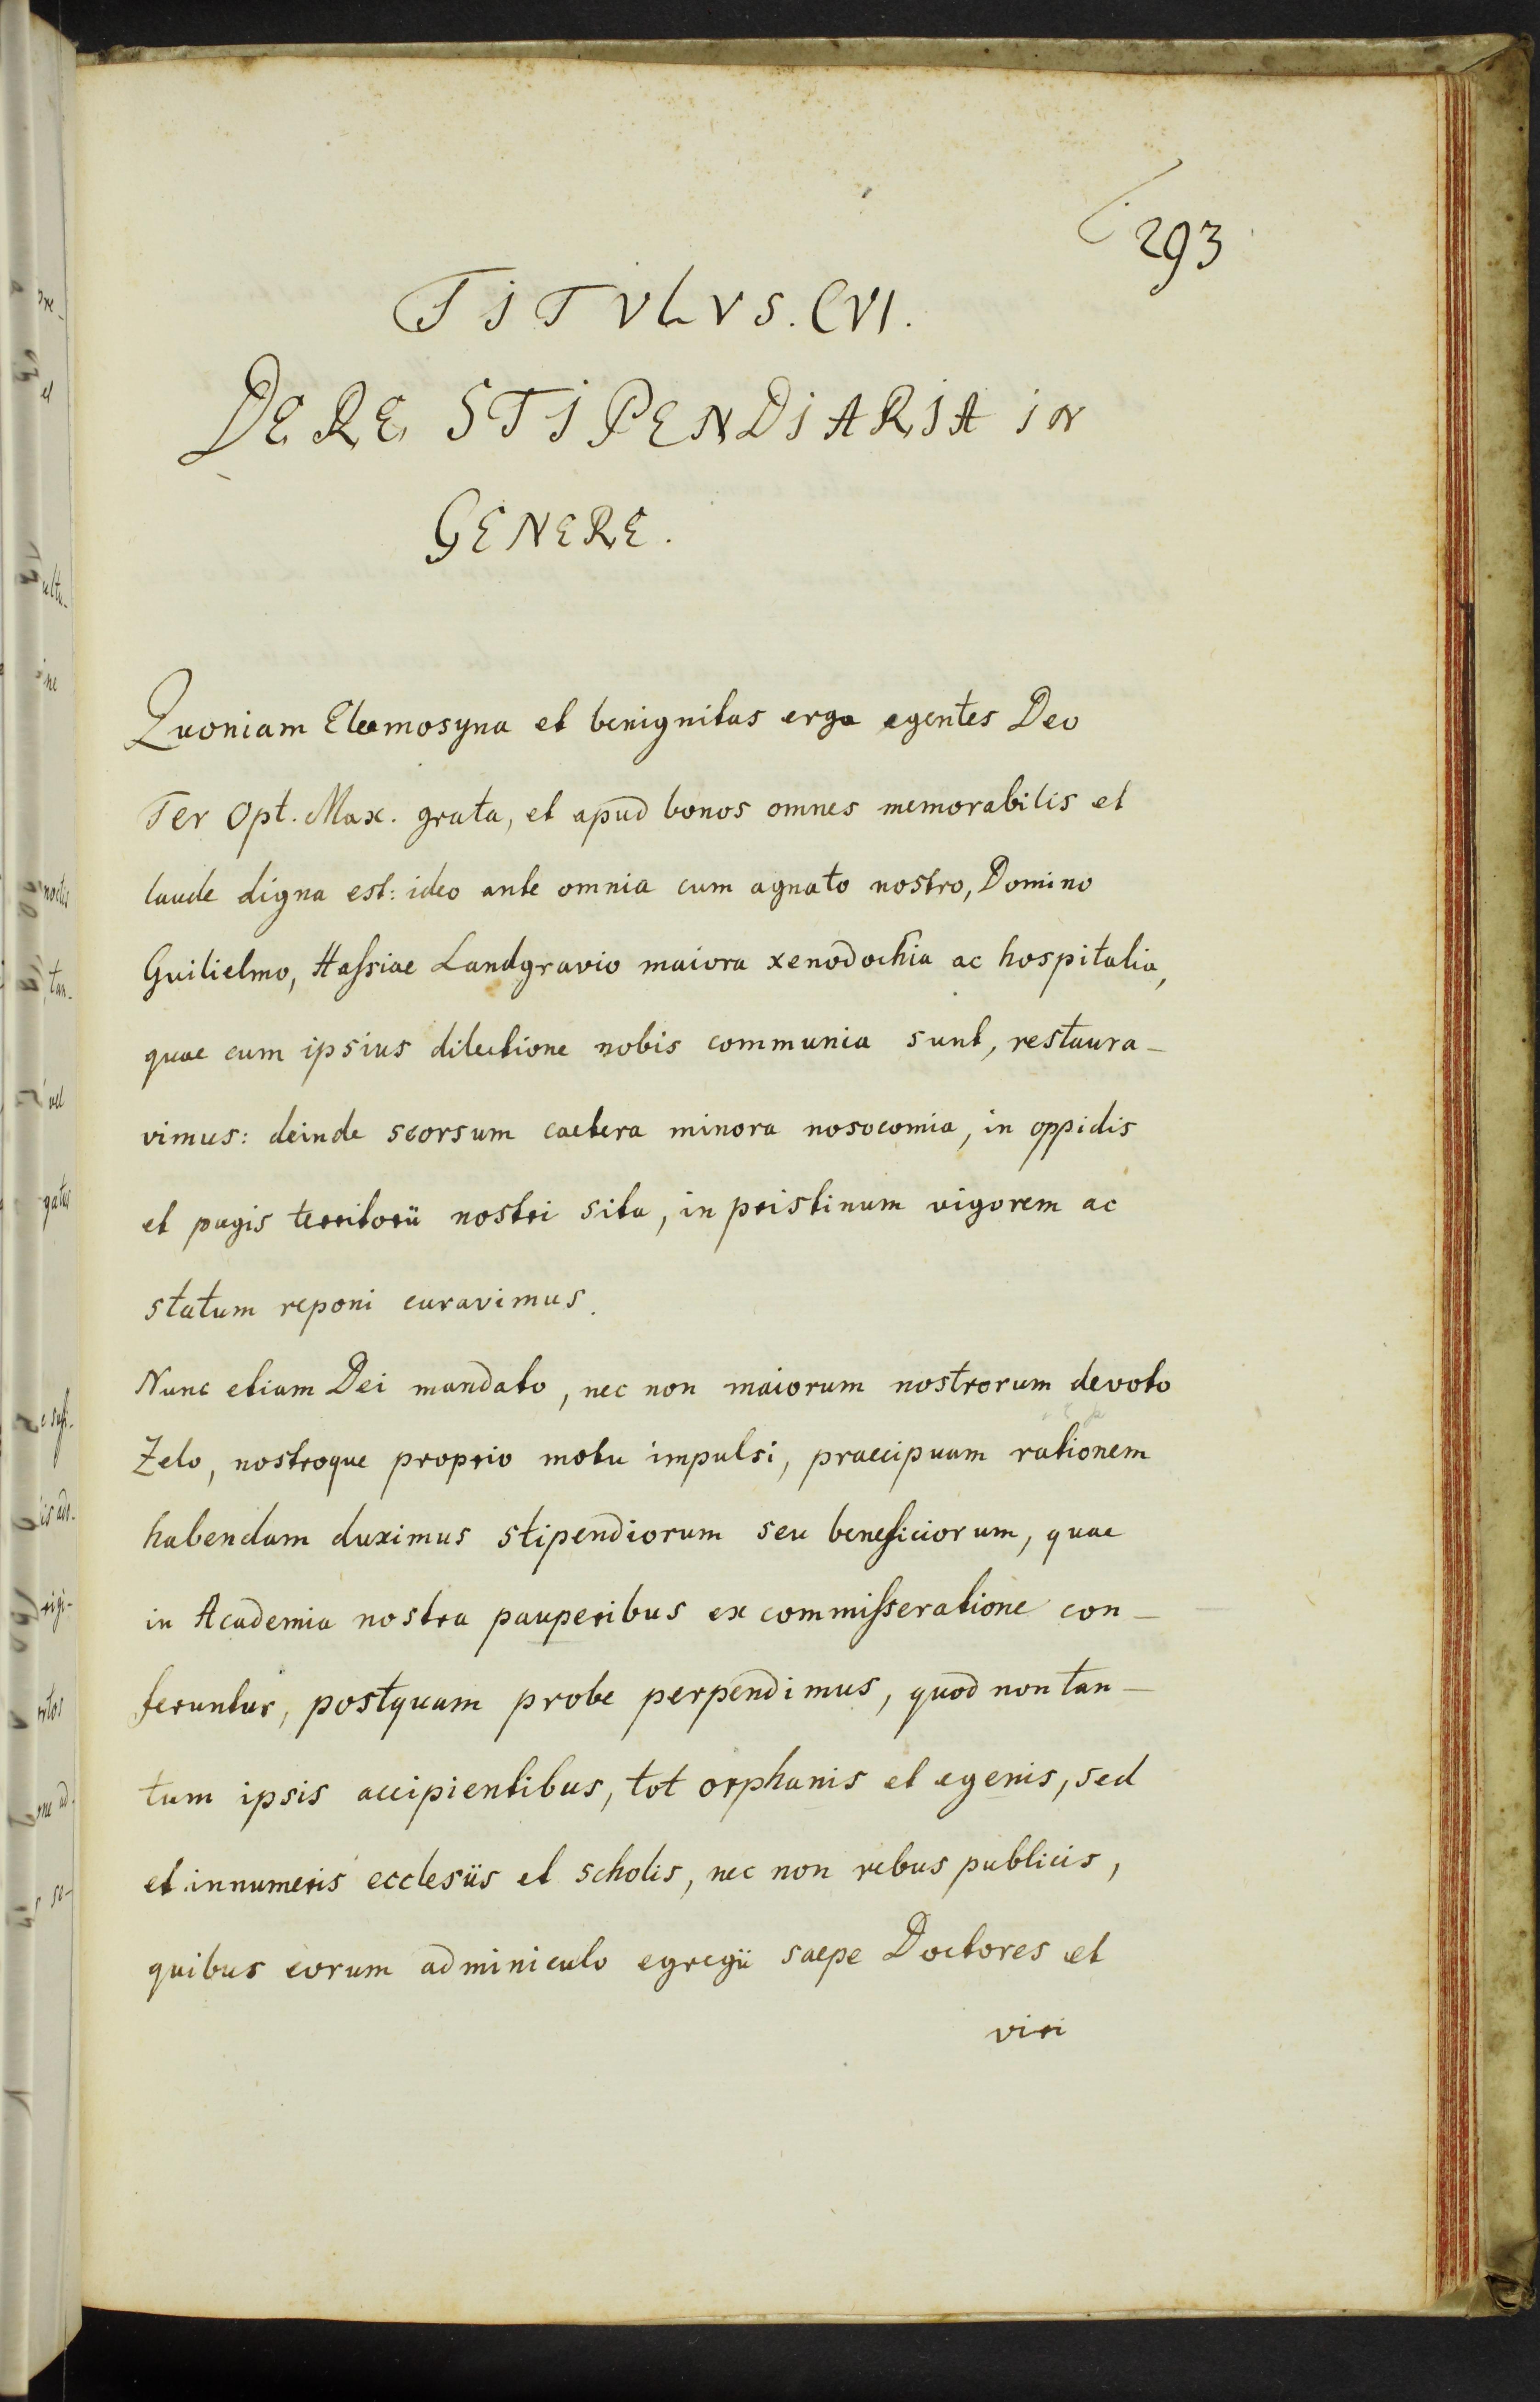 293
TITVLVS. CVI.
DE RE STIPENDIARIA IN
GENERE.
Quoniam Eleemosyna et benignitas erga egentes Deo
Ter Opt. Max. grata, et apud bonos omnes memorabilis et
laude digna est: ideo ante omnia cum agnato nostro, Domino
Guilielmo, Haſsiae Landgravio maiora xenodochia ac hospitalia,
quae cum ipsius dilectione nobis communia sunt, restaura-
vimus: deinde seorsum caetera minora nosocomia, in oppidis
et pagis territorii nostri sita, in pristinum vigorem ac
statum reponi curavimus.
Nunc etiam Dei mandato, nec non maiorum nostrorum devoto
Zelo, nostroque proprio motu impulsi, praecipuam rationem
habendam duximus stipendiorum seu beneficiorum, quae
in Academia nostra pauperibus ex commiſseratione con-
feruntur, postquam probe perpendimus, quod non tan-
tum ipsis accipientibus, tot orphanis et egenis, sed
et innumeris ecclesiis et scholis, nec non rebus publicis,
quibus eorum adminiculo egregii saepe Doctores et
viri